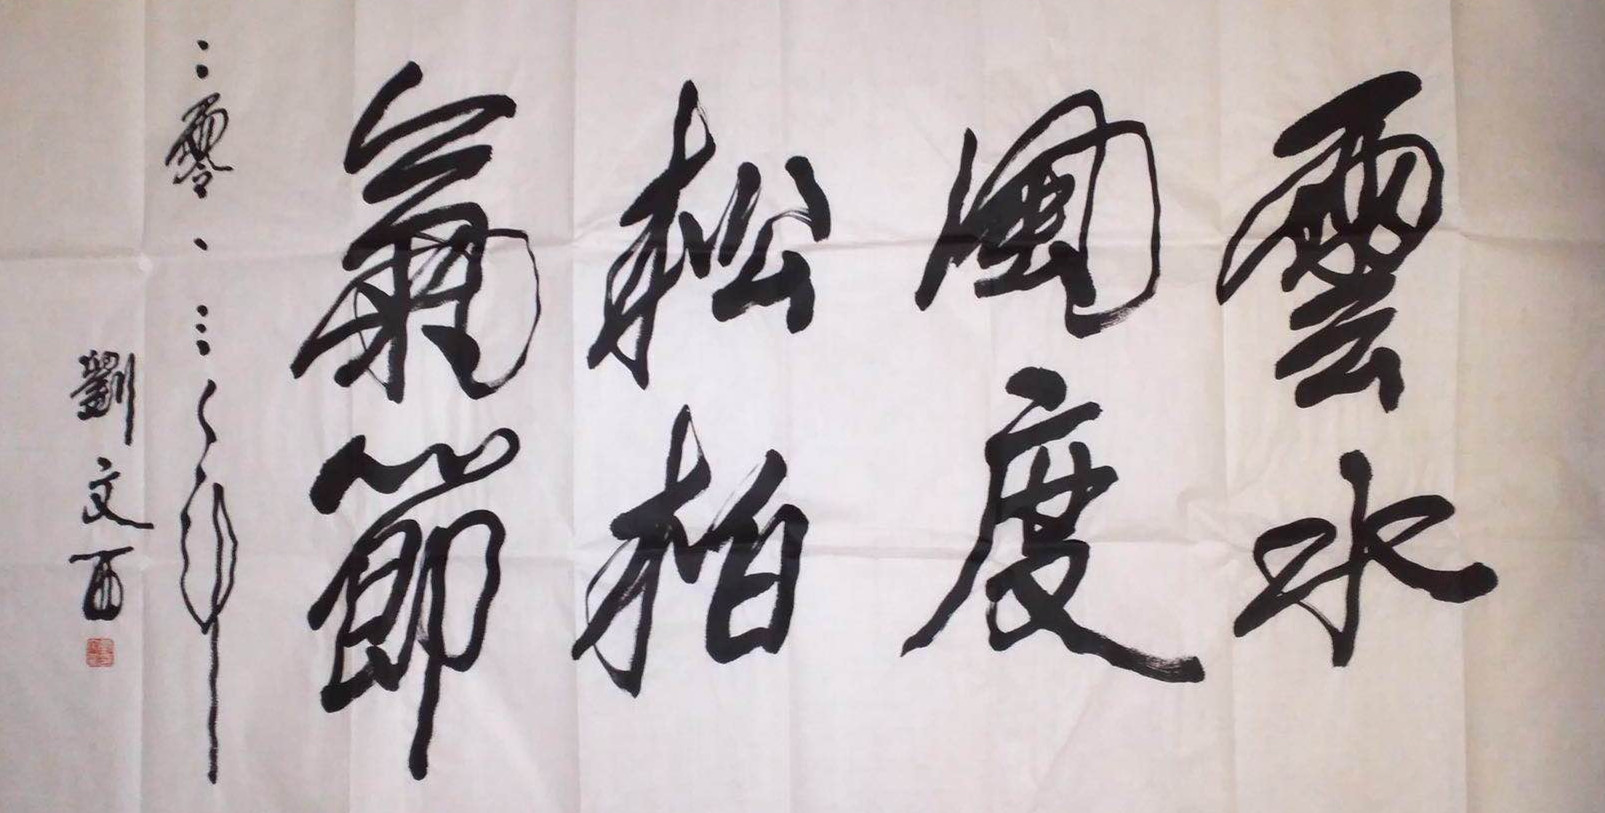 雲水
風度
松柏
氣節
二零一三年
劉文西